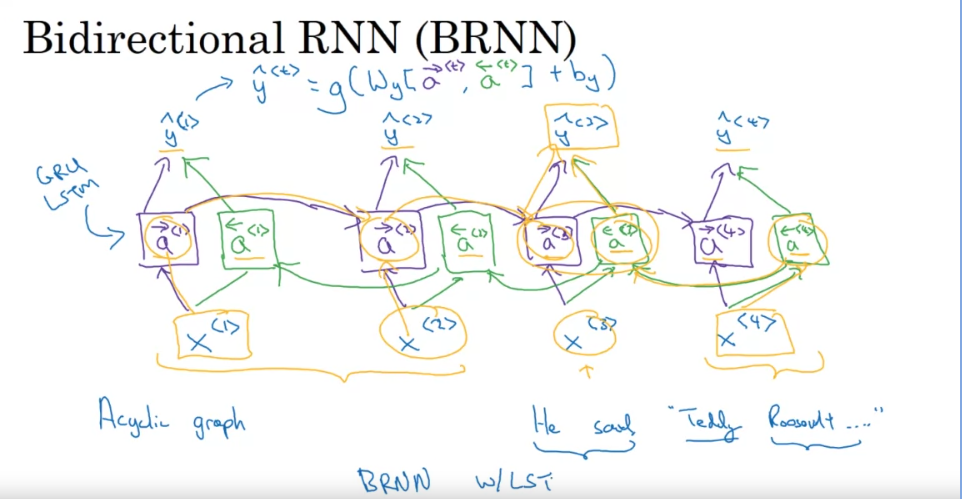 Bidirectional RNN (BRNN)
ŷ<t> = g(Wy[a→<t>, a←<t>] + by)
ŷ<1> ŷ<2> ŷ<3> ŷ<4>
GRU
LSTM
a→<1> a←<1> a→<2> a←<2> a→<3> a←<3> a→<4> a←<4>
x<1> x<2> x<3> x<4>
Acyclic graph He said, "Teddy Roosevelt ..."
BRNN w/LST